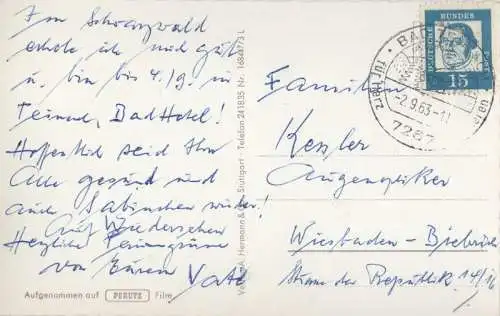 Im Schwarzwald
erhole ich mich gut
u. bin bis 4./9. in
Teinach, Bad Hotel!
Hoffentlich seid Ihr
Alle gesund und
auch Sabinchen wieder!
Auf Wiedersehen
Herzliche Feriengrüsse
von Eurem Vati
Aufgenommen auf PERUTZ Film
A. Hermann & Stuttgart - Telefon 241835 Nr. 16847/3 L
DEUTSCHE BUNDESPOST
15
BAD
für Herz
-2.9.63-11
7267
Familien
Kessler
Augenoptiker
Wiesbaden-Biebrich
Strasse der Republik 14/16